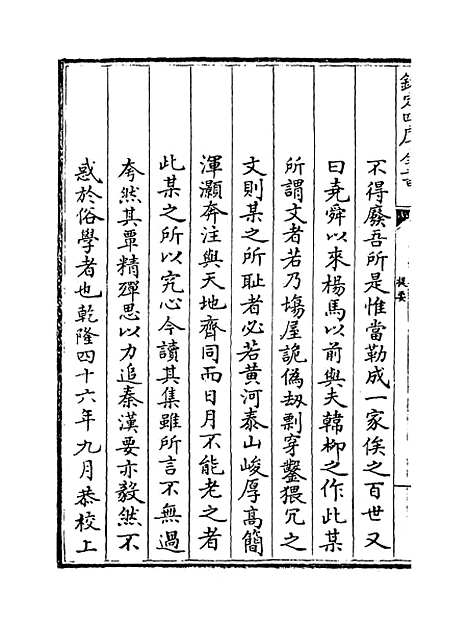 欽定四庫全書
提要
不得廢吾所是惟當勒成一家俟之百世又
曰堯舜以來楊馬以前與夫韓柳之作此某
所謂文者若乃塲屋詭偽刼剽穿鑿猥冗之
文則某之所耻者必若黄河泰山峻厚髙簡
渾灝奔注與天地齊同而日月不能老之者
此某之所以究心今讀其集雖所言不無過
夸然其覃精殫思以力追秦漢要亦毅然不
惑於俗學者也乾隆四十六年九月恭校上